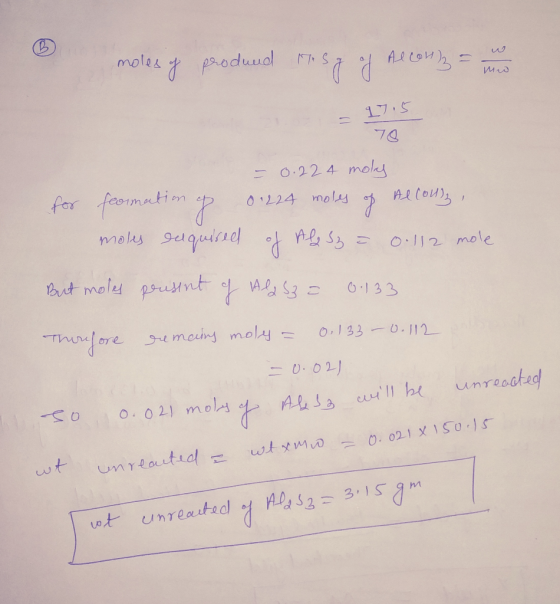 B
moles of produced 17.5g of Al(OH)3 = w/mw
= 17.5/78
= 0.224 moles
for formation of 0.224 moles of Al(OH)3,
moles required of Al2S3 = 0.112 mole
But moles present of Al2S3 = 0.133
Therefore remains moles = 0.133 - 0.112
= 0.021
so 0.021 moles of Al2S3 will be unreacted
wt unreacted = wt x Mw = 0.021 x 150.15
wt unreacted of Al2S3 = 3.15 gm